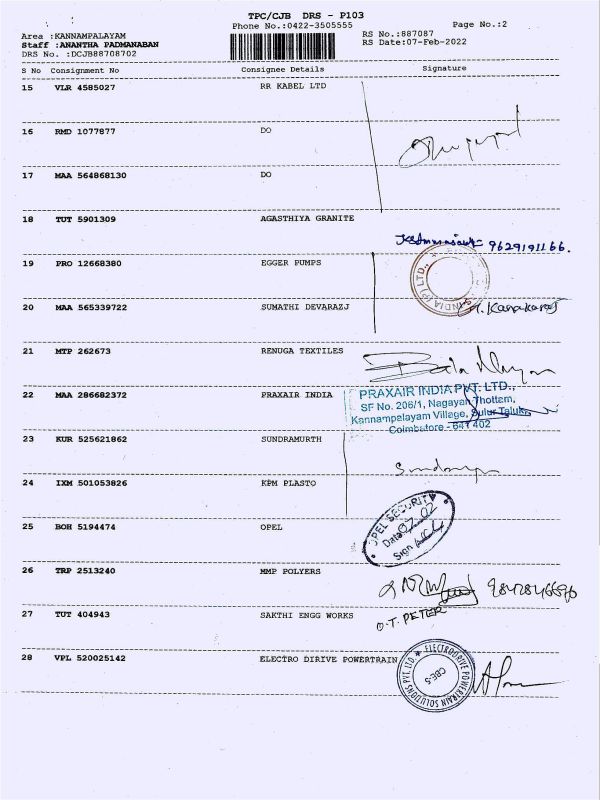 TPC/CJB DRS - P103
Phone No.:0422-3505555
Page No.:2
Area :KANNAMPALAYAM
RS No.:887087
Staff :ANANTHA PADMANABAN
RS Date:07-Feb-2022
DRS No. :DCJB88708702
S No Consignment No Consignee Details Signature
15 VLR 4585027 RR KABEL LTD
16 RMD 1077877 DO
17 MAA 564868130 DO
18 TUT 5901309 AGASTHIYA GRANITE
9629191166.
19 PRO 12668380 EGGER PUMPS
INDIA (P) LTD.,
20 MAA 565339722 SUMATHI DEVARAZJ
Kanakaraj
21 MTP 262673 RENUGA TEXTILES
22 MAA 286682372 PRAXAIR INDIA
PRAXAIR INDIA PVT. LTD.,
SF No. 206/1, Nagayan Thottam,
Kannampalayam Village, Sulur Taluk,
Coimbatore - 641 402
23 KUR 525621862 SUNDRAMURTH
24 IXM 501053826 KPM PLASTO
25 BOH 5194474 OPEL
OPEL SECURITY
Date 07/02
Sign
26 TRP 2513240 MMP POLYERS
27 TUT 404943 SAKTHI ENGG WORKS
O.T. PETER
28 VPL 520025142 ELECTRO DIRIVE POWERTRAIN
ELECTRODRIVE POWERTRAIN SOLUTIONS PVT. LTD
CBE-5